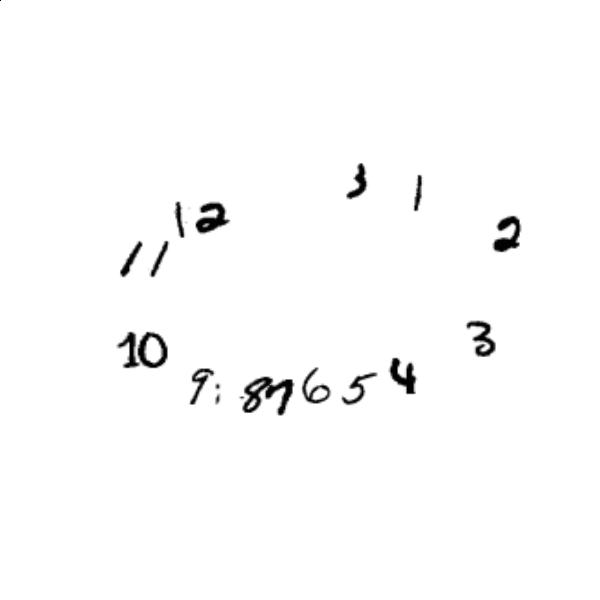 3 1
12 2
11
10 3
9: 8 7 6 5 4